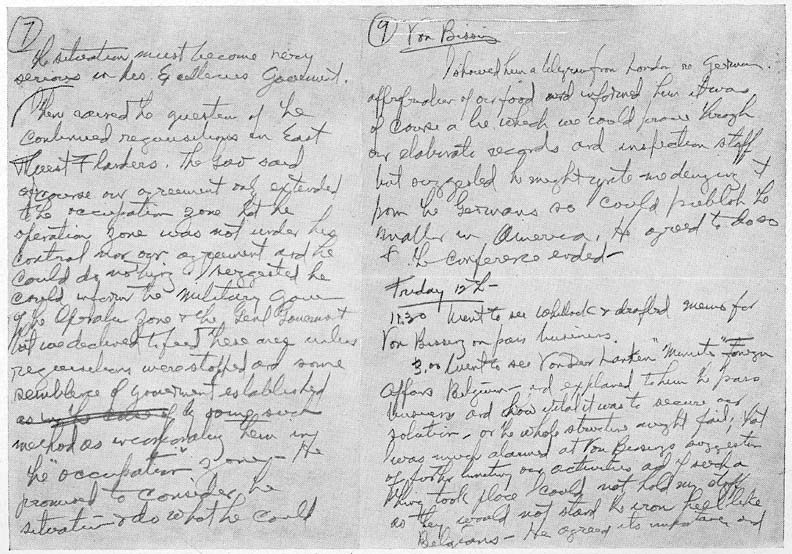 7
the situation must become very
serious in his Excellencies Government.
I then raised the question of the
continued requisitions in East
& West Flanders. The Gov said
of course our agreement only extended
to the occupation zone that the
operation zone was not under his
control nor our agreement and he
could do nothing. I suggested he
could inform the Military Gov
of the Operation zone & the Genl Government
that we declined to feed these areas unless
requisitions were stopped and some
semblance of government established
by some such
method as incorporating them in
the "occupation" zone — He
promised to consider the
situation & do what he could
9
Von Bissing
I showed him a telegram from London re German
of our food and informed him it was
of course a lie which we could prove through
our elaborate records and inspection staff
but suggested he might write me denying it
from the Germans so could publish the
matter in America. He agreed to do so
& the conference ended —
Friday 12th —
11.30 Went to see Whitlock & drafted memo for
Von Bissing on pass business.
3.00 Went to see Von Der Lancken "Minister" Foreign
Affairs Belgium — and explained to him the pass
business and how vital it was to secure our
solution — or the whole structure might fail; that
was much alarmed at Von Bissings suggestion
of further limiting our activities as if such a
thing took place I could not hold my staff
as they would not stand the iron heel like
Belgians — He agreed its importance and